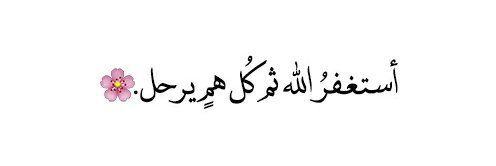 أستغفرُ الله ثم كُل همٍ يرحل.🌸